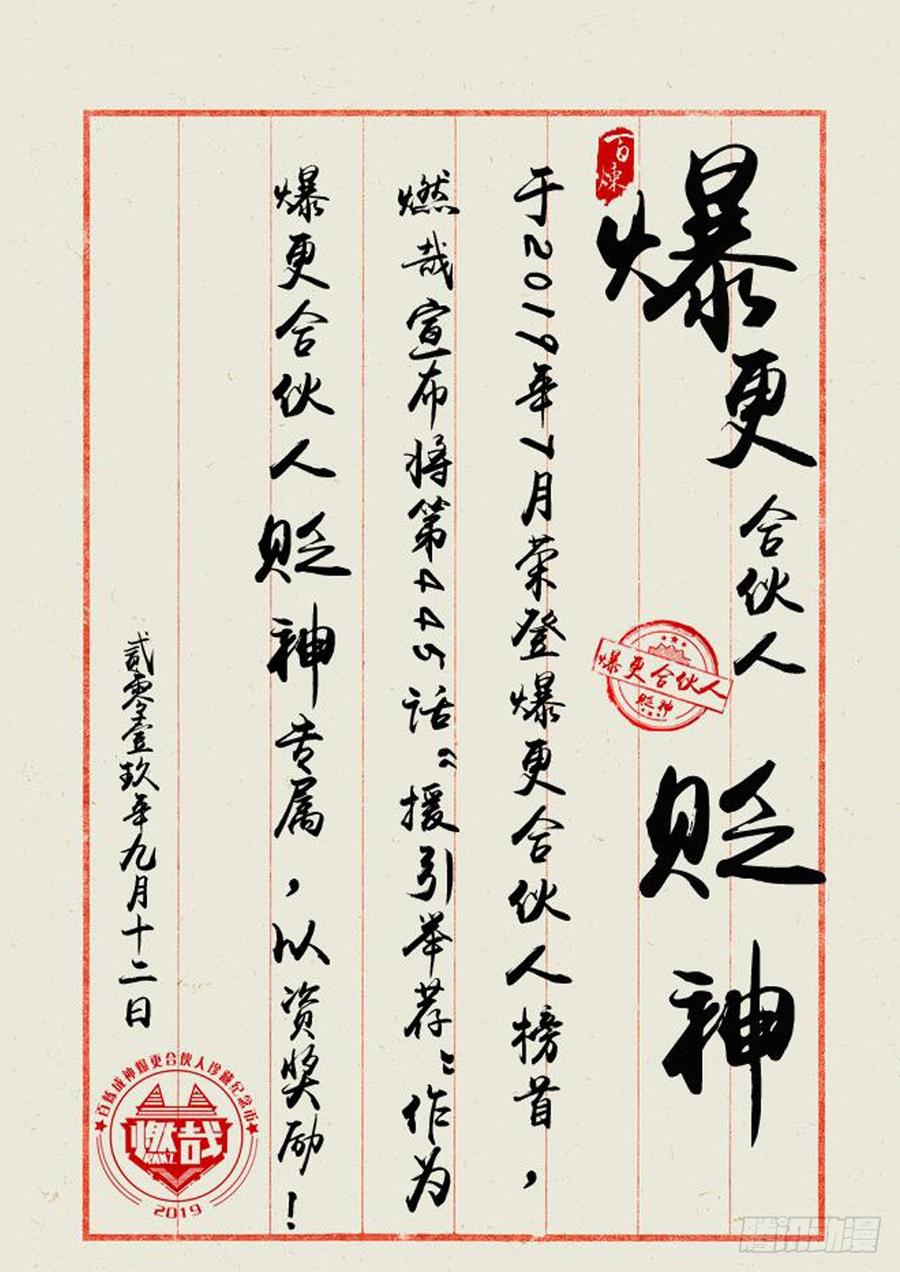 百炼
爆更合伙人 贬神
爆更合伙人
贬神
于2019年7月荣登爆更合伙人榜首，
燃哉宣布将第445话“援引举荐”作为
爆更合伙人贬神专属，以资奖励！
贰零壹玖年九月十二日
百炼成神爆更合伙人珍藏纪念币
燃哉
RANZ
2019
腾讯动漫